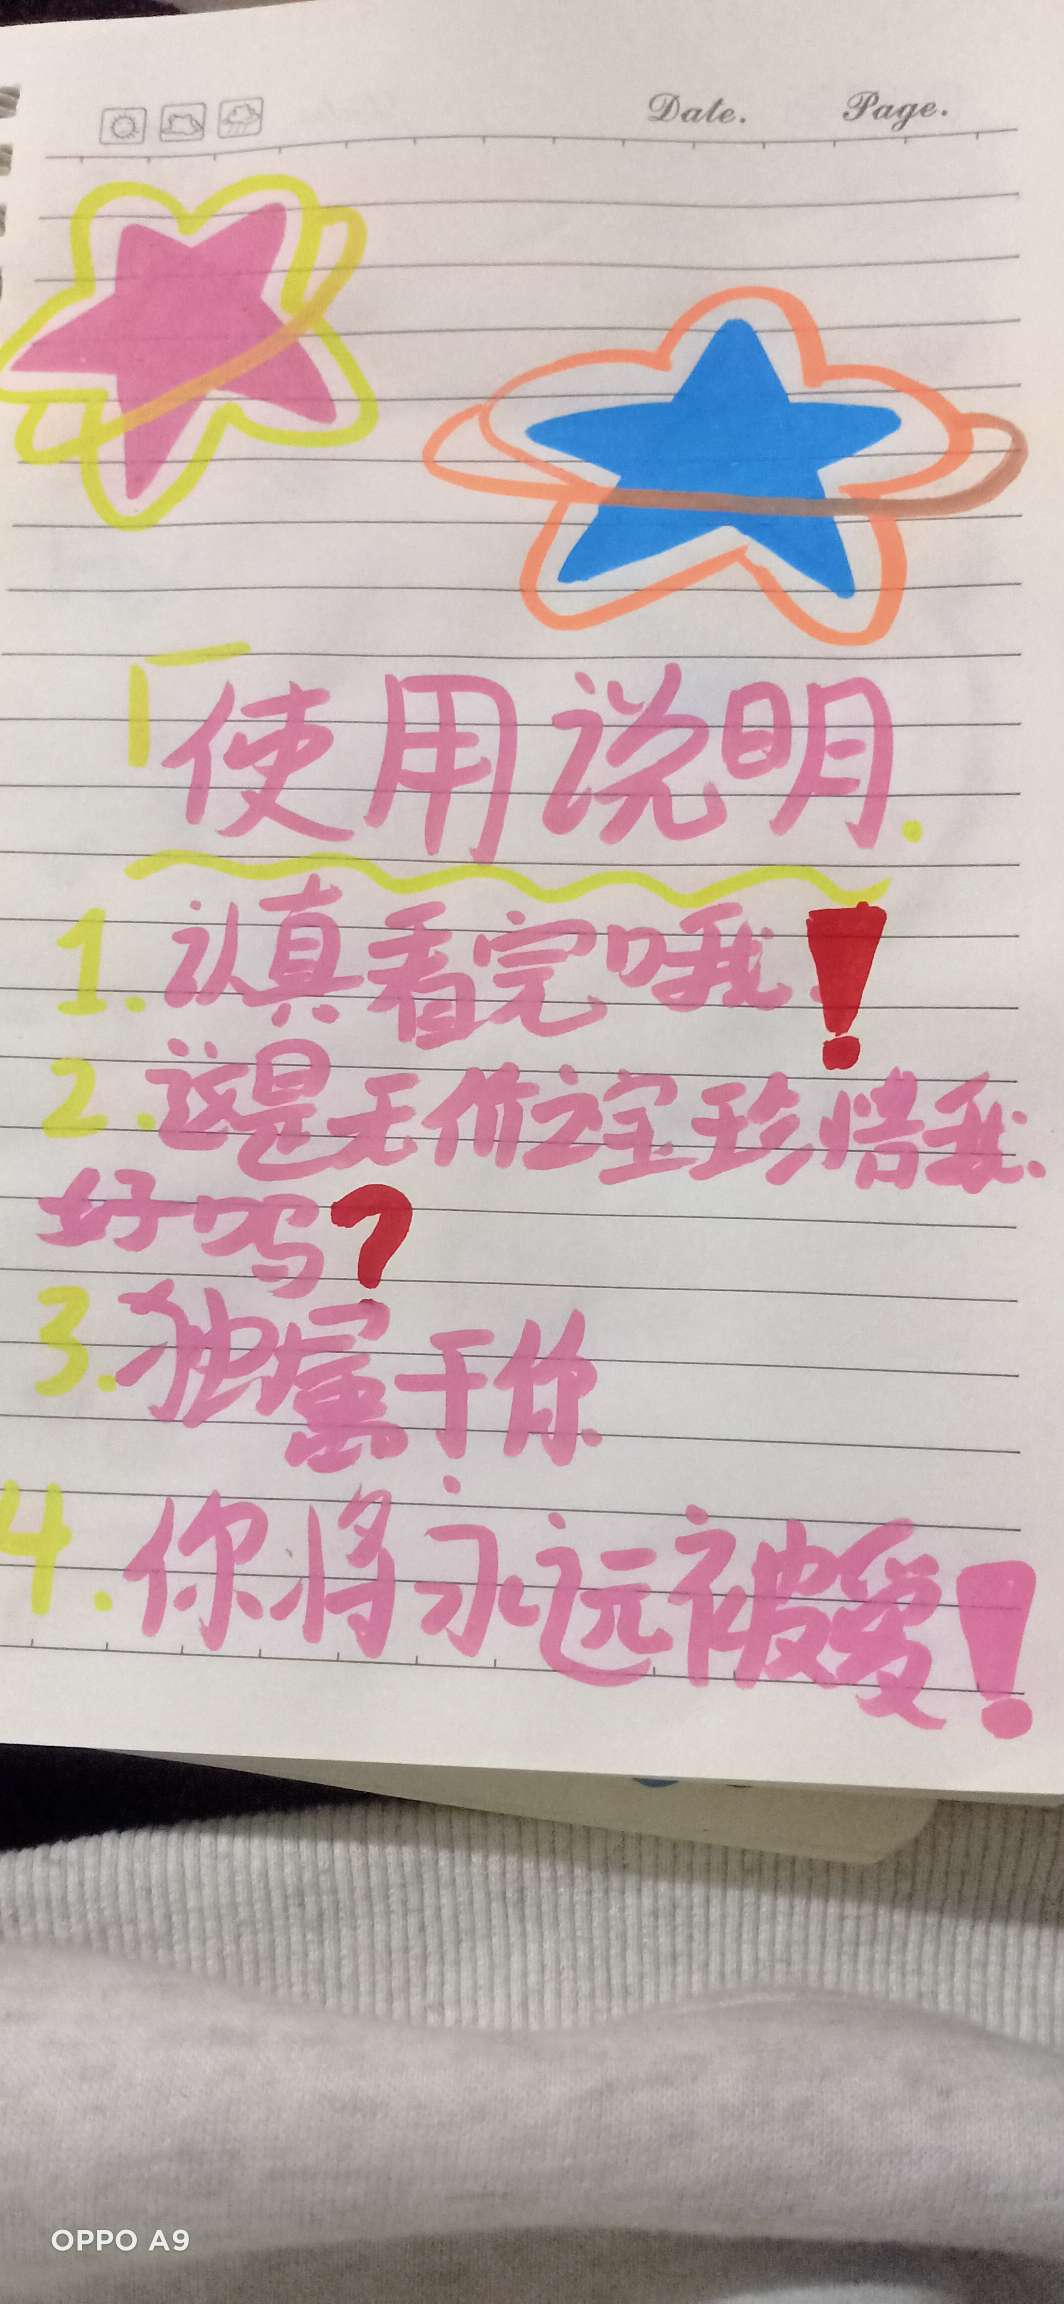 Date. Page.
「使用说明.
1.认真看完哦!
2.这是无价之宝珍惜我.
好吗?
3.独属于你.
4.你将永远被爱!
OPPO A9